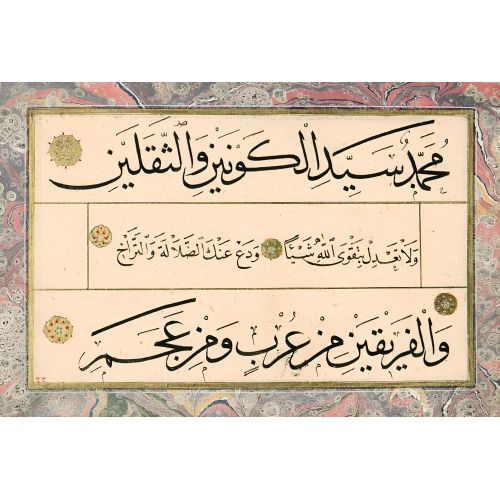 مُحَمَّدٌ سَيِّدُ الْكَوْنَيْنِ وَالثَّقَلَيْنِ
وَلَا تَعْدِلْ بِتَقْوَى اللّٰهِ شَيْئًا وَدَعْ عَنْكَ الضَّلَالَةَ وَالتَّرَاخِ
وَالْفَرِيقَيْنِ مِنْ عُرْبٍ وَمِنْ عَجَمِ